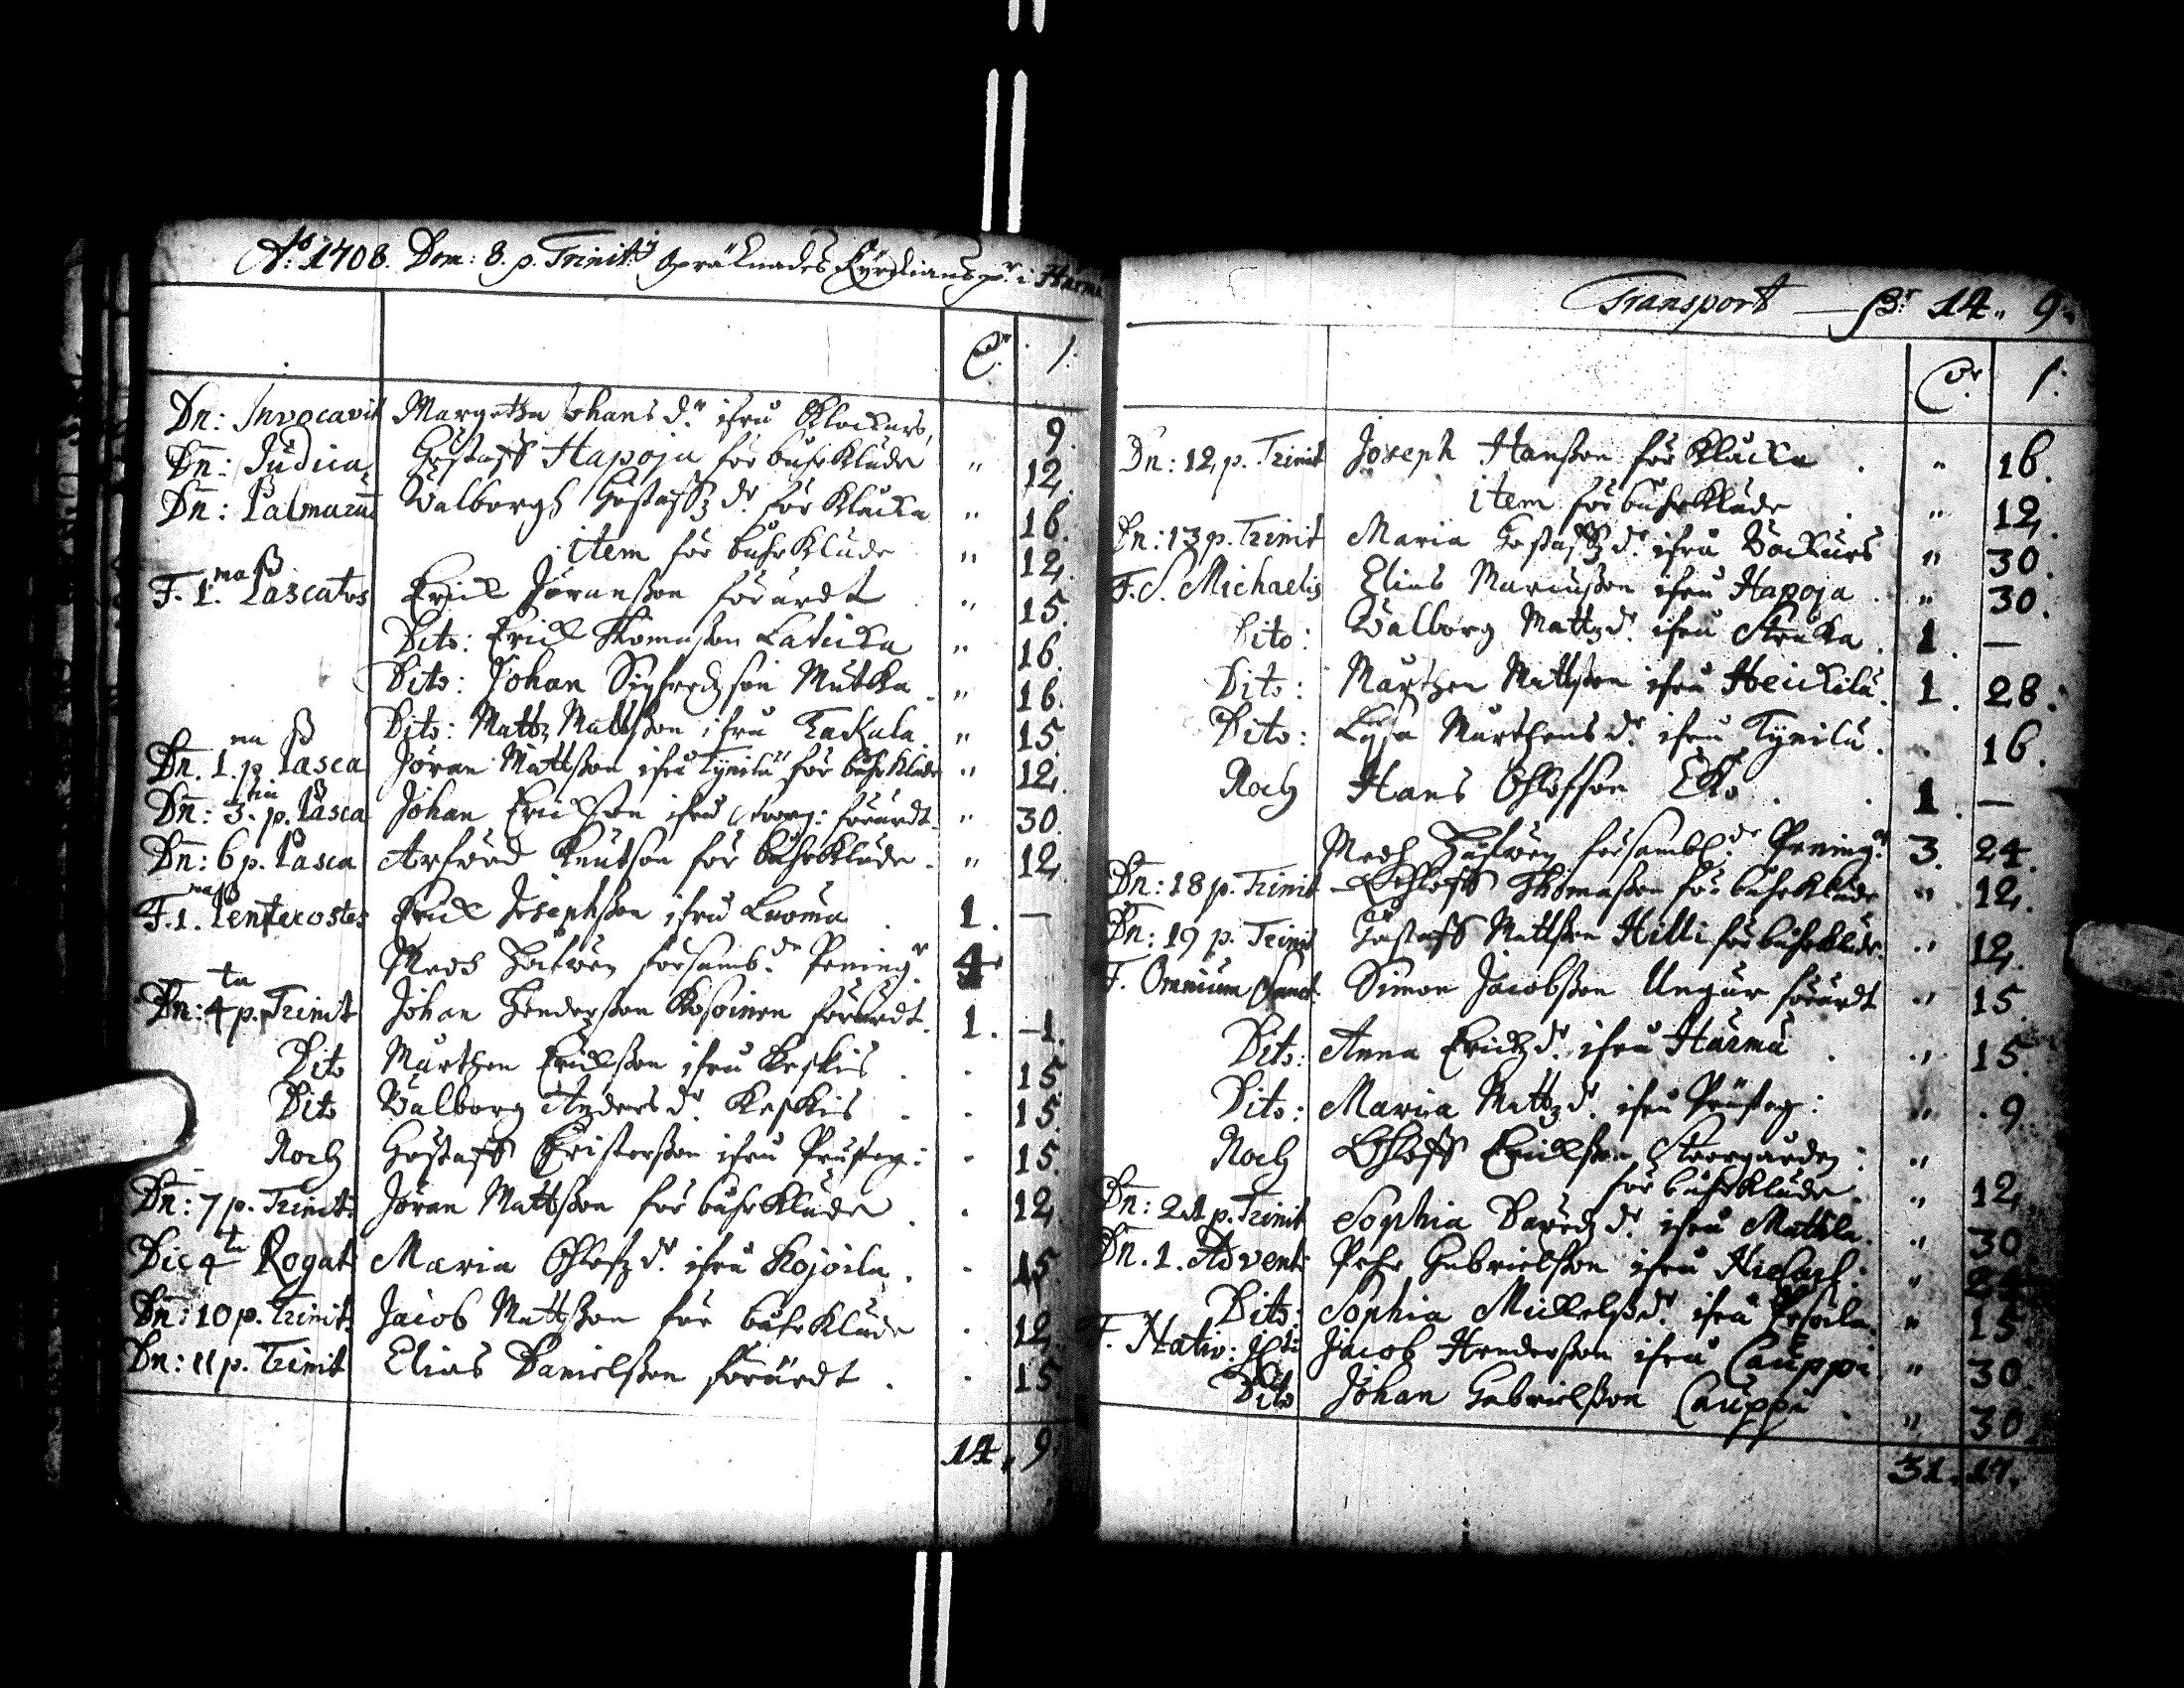 Aº: 1708. Dom: 8. p. Trinit: opräknades Kyrkians p:r i Härmä
C:r 1:
Dn: Invocavit Margetha Johans d:r ifrå Klockars, 9.
Dn: Judica Gustaff Hapoja för bahrKläde " 12.
Dn: Palmarum Walborgh Gustaffz d:r för Klåcka " 16.
item för bahrKläde " 12.
F. 1. Pascatos Erich Jöransson förärdt " 15.
Dito: Erick Thomasson Laticka " 16.
Dito: Johan Sigfredzson Mutka " 16.
Dito: Mattz Mattsson ifrå Kackula " 15.
Dn. 1. p. Pasca Jöran Mattsson ifrå Tynilä för bahrKläde " 12.
Dn: 3. p. Pasca Johan Erickson ifrå Storg: förärdt " 30.
Dn: 6 p. Pasca Arfwed Knutson för bahrKläde " 12.
F. 1. Pentecostes Erick Josephson ifrå Luoma 1. —
Medh Håfwen församb:de Pening:r 4
Dn: 4 p. Trinit Johan Hendersson Kosoinen förärdt. 1. —1.
Dito Marthen Ericksson ifrå Keskis 15
Dito Walborg Anders d:r Keskis 15.
Noch Gustaff Christersson ifrå Prusteg: 15.
Dn: 7 p. Trinit: Jöran Mattsson för bahrKläde 12.
Die 4 Rogat: Maria Ohlofz d:r ifrå Kojoila 15.
Dn: 10 p. Trinit: Jacob Mattsson för bahrKläde 12.
Dn: 11 p. Trinit Elias Danielsson förärdt 15.
14. 9.
Transport — 14. 9.
C:r 1:
Dn: 12 p. Trinit Joseph Hansson för Klåcka " 16.
item för bahrKläde " 12.
Dn: 13 p. Trinit Maria Gustaffz d:r ifrå Wockurs " 30.
F. S. Michaelis Elias Marcusson ifrå Hapoja " 30.
Dito: Walborg Mattz d:r ifrå Knuka 1. —
Dito: Marthen Mattsson ifrå Heickilä 1. 28.
Dito: Lisa Marthens d:r ifrå Tynilä 16.
Noch Hans Ohlofson Eko 1. —
Medh Håfwen försambl:de Pening:r 3. 24.
Dn: 18 p. Trinit Ohloff Thomasson för bahrKläde " 12.
Dn: 19 p. Trinit Gustaff Mattsson Hilli för bahrkläde " 12.
F. Omnium Sanct: Simon Jacobsson Ungur förärdt " 15.
Dito: Anna Erickz d:r ifrå Härmä " 15.
Dito: Maria Mattz d:r ifrå Prusteg: " 9.
Noch Ohloff Ericksson Storgården
för bahrkläde " 12.
Dn: 21 p. Trinit Sophia Davidz d:r ifrå Mattila " 30.
Dn. 1. Advent: Pehr Gabrielsson ifrå " 24
Dito: Sophia Mickelsd:r ifrå Pesoila " 15.
F. Nativ: Jacob Hendersson ifrå Cauppi " 30
Dito Johan Gabrielsson Cauppi " 30.
31. 17.